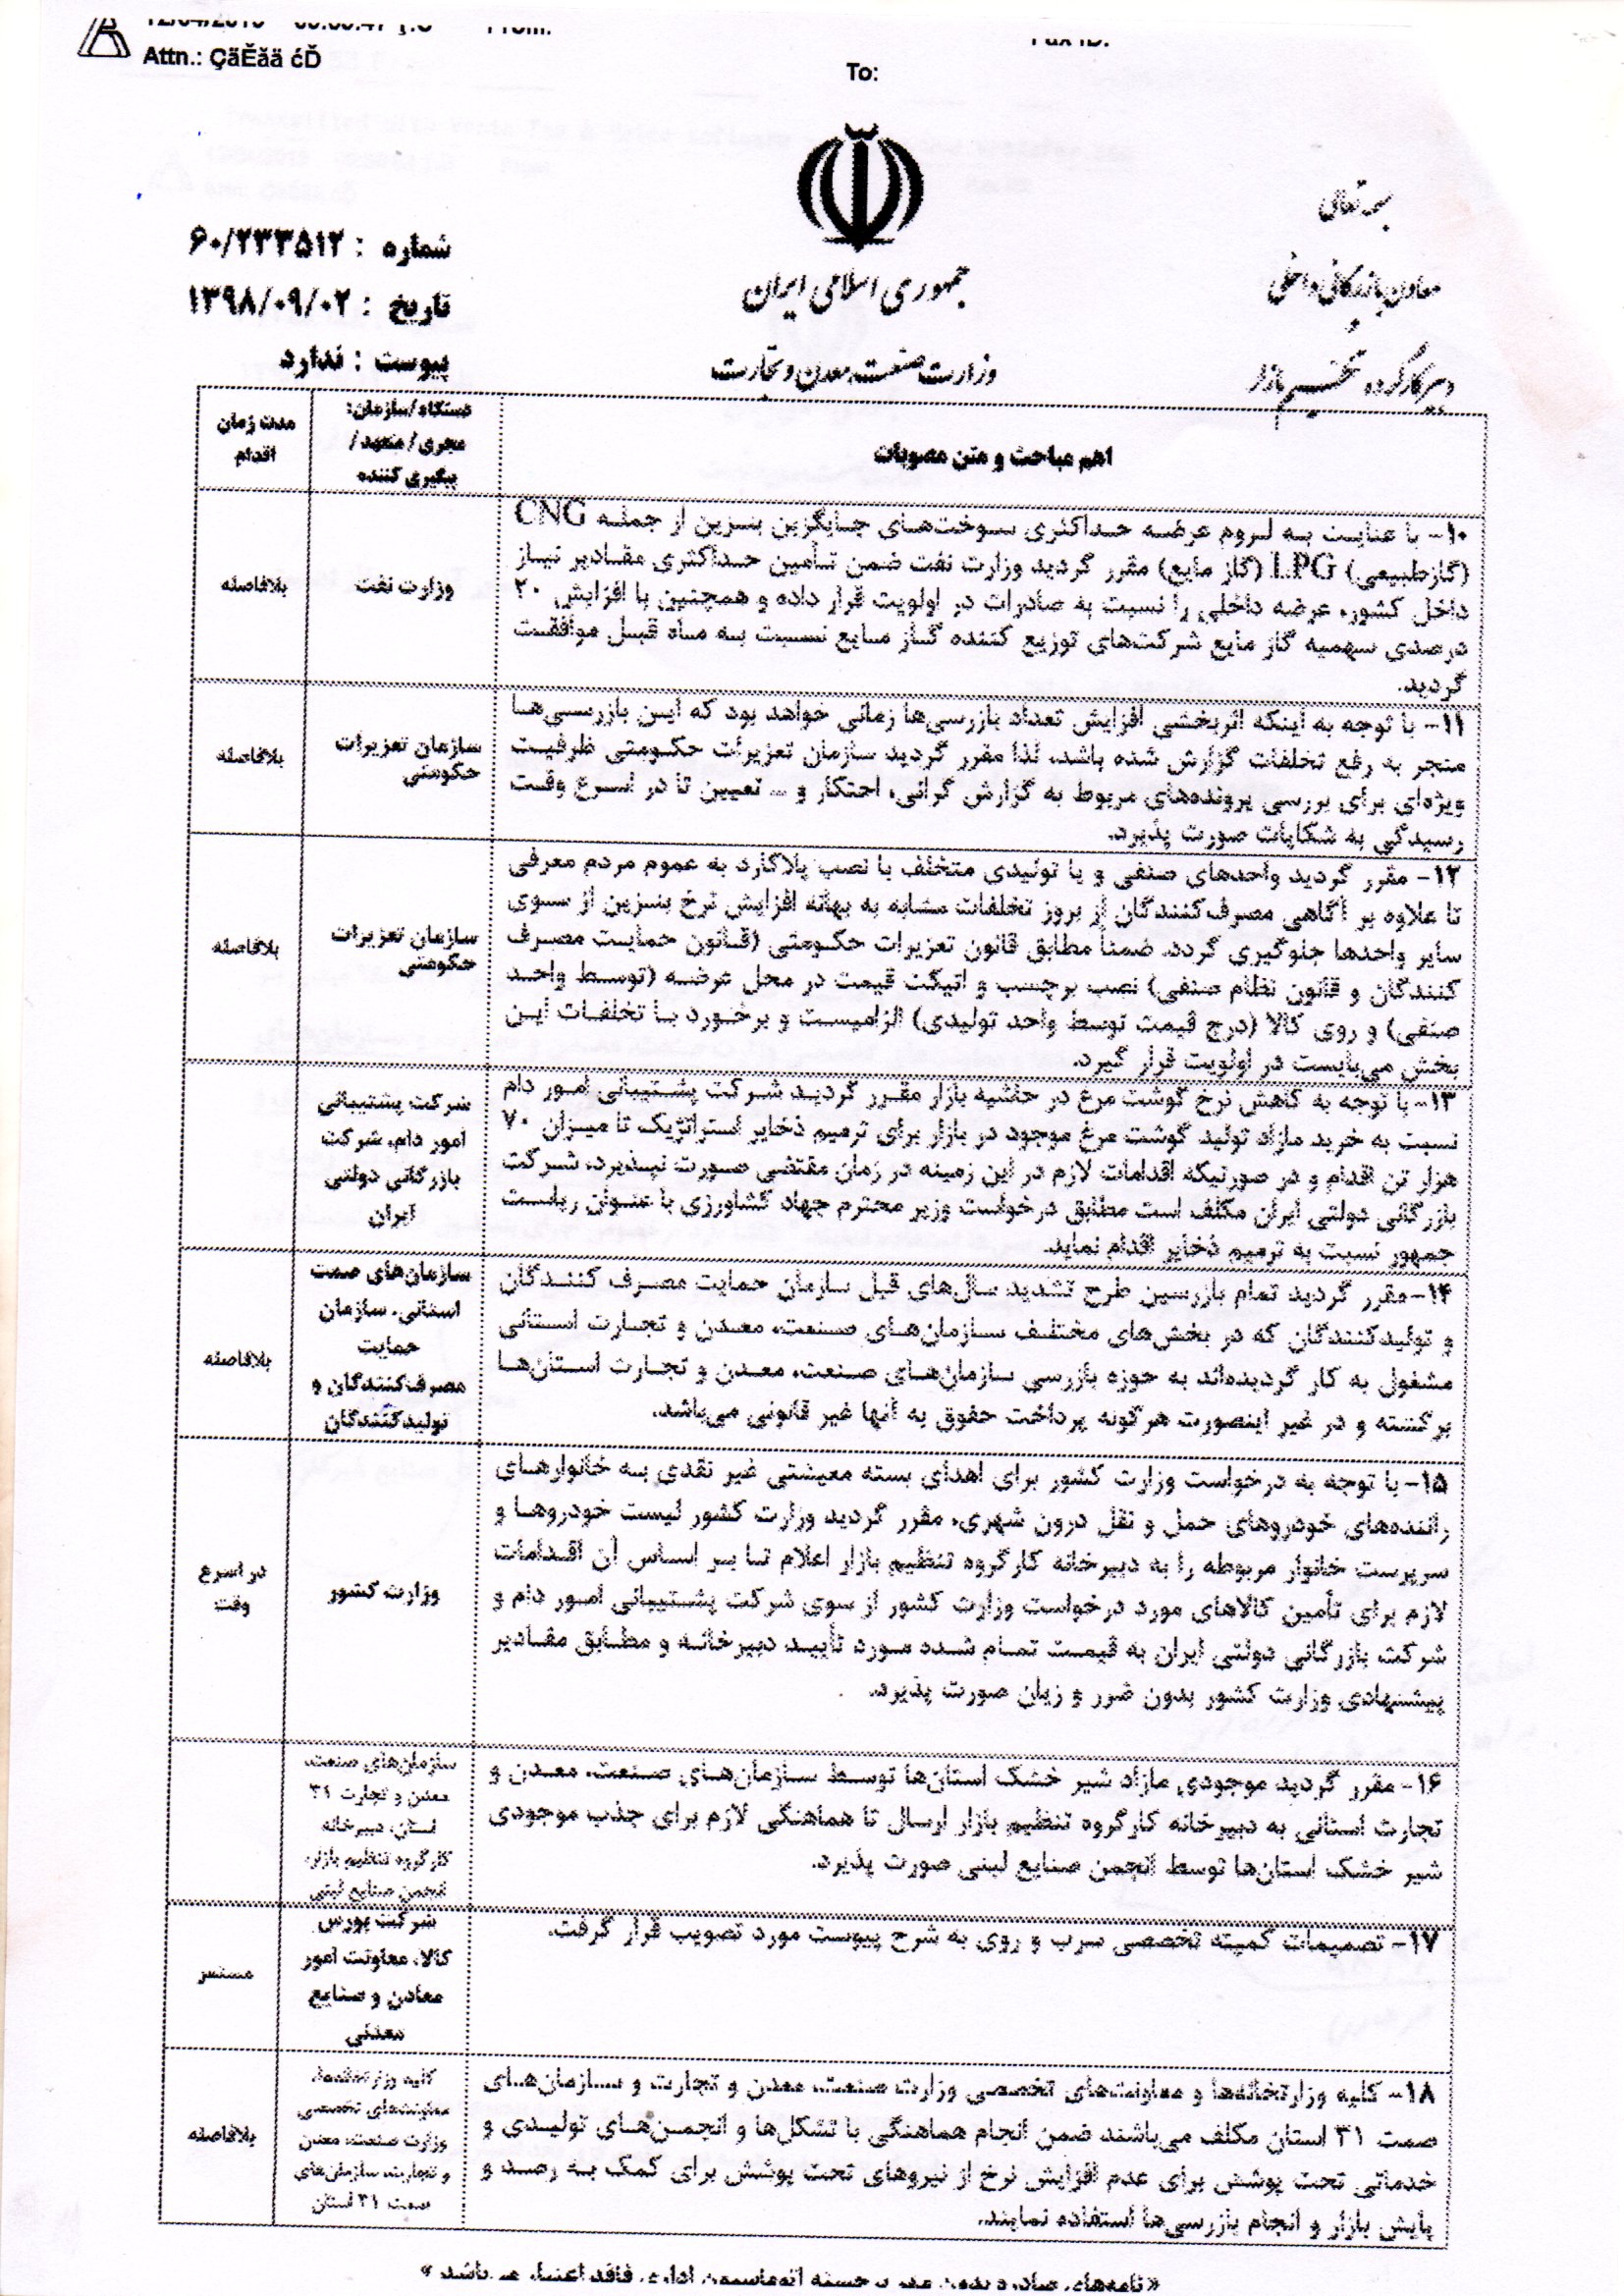 Attn.: ÇäĚăä ćĎ
To:
بسمه تعالی
معاون بازرگانی داخلی
و
دبیر کارگروه تنظیم بازار
جمهوری اسلامی ایران
وزارت صنعت، معدن و تجارت
شماره : ۶۰/۲۳۳۵۱۲
تاریخ : ۱۳۹۸/۰۹/۰۲
پیوست : ندارد
اهم مباحث و متن مصوبات
دستگاه/سازمان:
مجری/ متعهد/
پیگیری کننده
مدت زمان
اقدام
۱۰- با عنایت به لزوم عرضه حداکثری سوخت‌های جایگزین بنزین از جمله CNG
(گازطبیعی) LPG (گاز مایع) مقرر گردید وزارت نفت ضمن تأمین حداکثری مقادیر نیاز
داخل کشور، عرضه داخلی را نسبت به صادرات در اولویت قرار داده و همچنین با افزایش ۲۰
درصدی سهمیه گاز مایع شرکت‌های توزیع کننده گاز مایع نسبت به ماه قبل موافقت
گردید.
وزارت نفت
بلافاصله
۱۱- با توجه به اینکه اثربخشی افزایش تعداد بازرسی‌ها زمانی خواهد بود که این بازرسی‌ها
منجر به رفع تخلفات گزارش شده باشد، لذا مقرر گردید سازمان تعزیرات حکومتی ظرفیت
ویژه‌ای برای بررسی پرونده‌های مربوط به گزارش گرانی، احتکار و ... تعیین تا در اسرع وقت
رسیدگی به شکایات صورت پذیرد.
سازمان تعزیرات
حکومتی
بلافاصله
۱۲- مقرر گردید واحدهای صنفی و یا تولیدی متخلف با نصب پلاکارد به عموم مردم معرفی
تا علاوه بر آگاهی مصرف‌کنندگان از بروز تخلفات مشابه به بهانه افزایش نرخ بنزین از سوی
سایر واحدها جلوگیری گردد. ضمناً مطابق قانون تعزیرات حکومتی (قانون حمایت مصرف
کنندگان و قانون نظام صنفی) نصب برچسب و اتیکت قیمت در محل عرضه (توسط واحد
صنفی) و روی کالا (درج قیمت توسط واحد تولیدی) الزامیست و برخورد با تخلفات این
بخش می‌بایست در اولویت قرار گیرد.
سازمان تعزیرات
حکومتی
بلافاصله
۱۳- با توجه به کاهش نرخ گوشت مرغ در حاشیه بازار مقرر گردید شرکت پشتیبانی امور دام
نسبت به خرید مازاد تولید گوشت مرغ موجود در بازار برای ترمیم ذخایر استراتژیک تا میزان ۷۰
هزار تن اقدام و در صورتیکه اقدامات لازم در این زمینه در زمان مقتضی صورت نپذیرد، شرکت
بازرگانی دولتی ایران مکلف است مطابق درخواست وزیر محترم جهاد کشاورزی با عنوان ریاست
جمهور نسبت به ترمیم ذخایر اقدام نماید.
شرکت پشتیبانی
امور دام، شرکت
بازرگانی دولتی
ایران
۱۴- مقرر گردید تمام بازرسین طرح تشدید سال‌های قبل سازمان حمایت مصرف کنندگان
و تولیدکنندگان که در بخش‌های مختلف سازمان‌های صنعت، معدن و تجارت استانی
مشغول به کار گردیده‌اند به حوزه بازرسی سازمان‌های صنعت، معدن و تجارت استان‌ها
برگشته و در غیر اینصورت هرگونه پرداخت حقوق به آنها غیر قانونی می‌باشد.
سازمان‌های صمت
استانی، سازمان
حمایت
مصرف‌کنندگان و
تولیدکنندگان
بلافاصله
۱۵- با توجه به درخواست وزارت کشور برای اهدای بسته معیشتی غیر نقدی به خانوارهای
راننده‌های خودروهای حمل و نقل درون شهری، مقرر گردید وزارت کشور لیست خودروها و
سرپرست خانوار مربوطه را به دبیرخانه کارگروه تنظیم بازار اعلام تا بر اساس آن اقدامات
لازم برای تأمین کالاهای مورد درخواست وزارت کشور از سوی شرکت پشتیبانی امور دام و
شرکت بازرگانی دولتی ایران به قیمت تمام شده مورد تأیید دبیرخانه و مطابق مقادیر
پیشنهادی وزارت کشور بدون ضرر و زیان صورت پذیرد.
وزارت کشور
در اسرع
وقت
۱۶- مقرر گردید موجودی مازاد شیر خشک استان‌ها توسط سازمان‌های صنعت، معدن و
تجارت استانی به دبیرخانه کارگروه تنظیم بازار ارسال تا هماهنگی لازم برای جذب موجودی
شیر خشک استان‌ها توسط انجمن صنایع لبنی صورت پذیرد.
سازمان‌های صنعت،
معدن و تجارت ۳۱
استان، دبیرخانه
کارگروه تنظیم بازار،
انجمن صنایع لبنی
۱۷- تصمیمات کمیته تخصصی سرب و روی به شرح پیوست مورد تصویب قرار گرفت.
شرکت بورس
کالا، معاونت امور
معادن و صنایع
معدنی
مستمر
۱۸- کلیه وزارتخانه‌ها و معاونت‌های تخصصی وزارت صنعت، معدن و تجارت و سازمان‌های
صمت ۳۱ استان مکلف می‌باشند ضمن انجام هماهنگی با تشکل‌ها و انجمن‌های تولیدی و
خدماتی تحت پوشش برای عدم افزایش نرخ از نیروهای تحت پوشش برای کمک به رصد و
پایش بازار و انجام بازرسی‌ها استفاده نمایند.
کلیه وزارتخانه‌ها،
معاونت‌های تخصصی
وزارت صنعت، معدن
و تجارت، سازمان‌های
صمت ۳۱ استان
بلافاصله